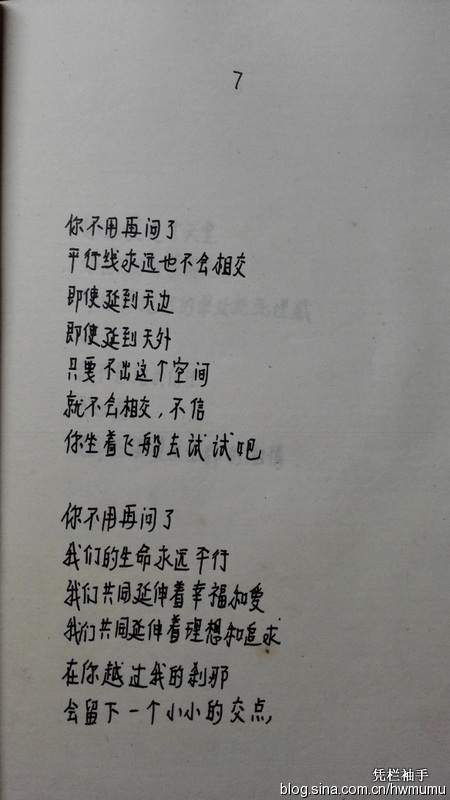 7
你不用再问了
平行线永远也不会相交
即使延到天边
即使延到天外
只要不出这个空间
就不会相交，不信
你坐着飞船去试试吧
你不用再问了
我们的生命永远平行
我们共同延伸着幸福和爱
我们共同延伸着理想和追求
在你越过我的刹那
会留下一个小小的交点，
凭栏袖手
blog.sina.com.cn/hwmumu